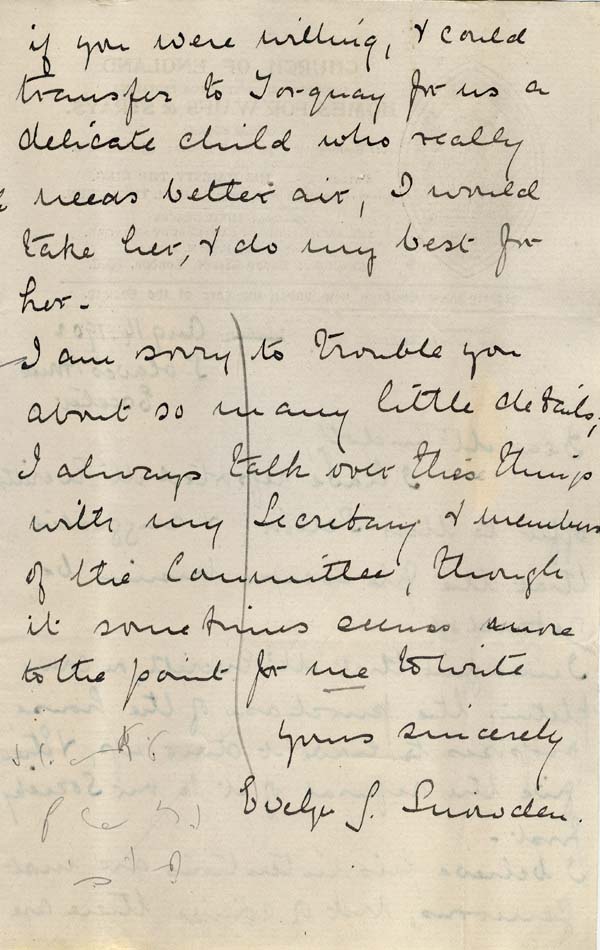 if you were willing, & could
transfer to Torquay for us a
delicate child who really
needs better air, I would
take her, & do my best for
her.
I am sorry to trouble you
about so many little details,
I always talk over these things
with my Secretary & members
of the Committee, though
it sometimes seems more
to the point for me to write
yours sincerely
Evelyn S. Snowden.